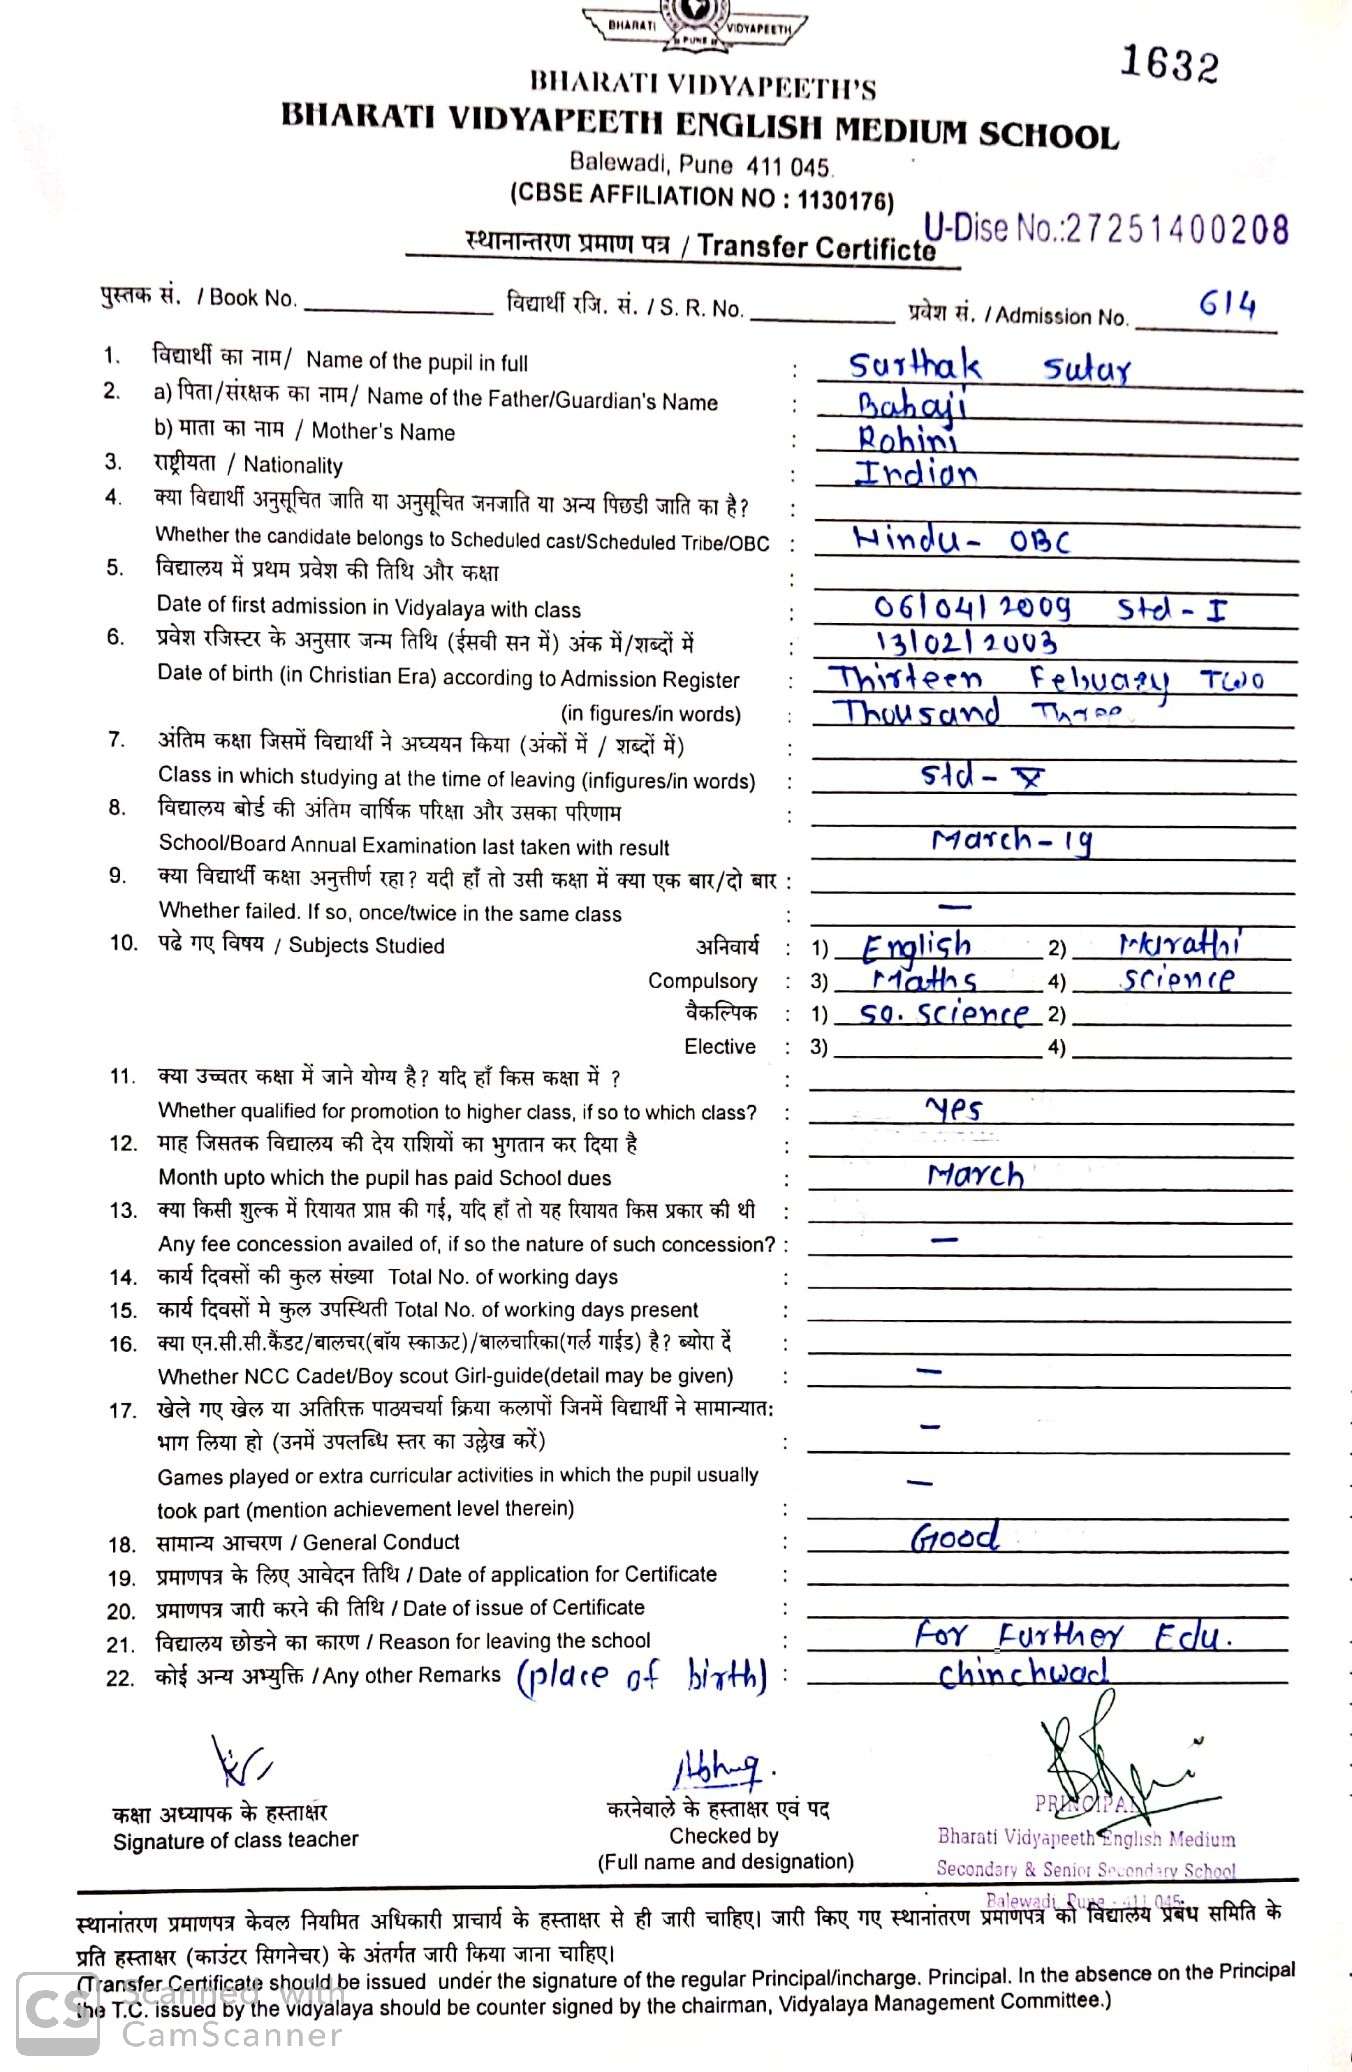 BHARATI VIDYAPEETH
PUNE
1632
BHARATI VIDYAPEETH'S
BHARATI VIDYAPEETH ENGLISH MEDIUM SCHOOL
Balewadi, Pune 411 045.
(CBSE AFFILIATION NO : 1130176)
U-Dise No.:27251400208
स्थानान्तरण प्रमाण पत्र / Transfer Certificte
पुस्तक सं. / Book No. विद्यार्थी रजि. सं. / S. R. No. प्रवेश सं. / Admission No. 614
1. विद्यार्थी का नाम/ Name of the pupil in full : Sarthak Sutar
2. a) पिता/संरक्षक का नाम/ Name of the Father/Guardian's Name : Babaji
b) माता का नाम / Mother's Name : Rohini
3. राष्ट्रीयता / Nationality : Indian
4. क्या विद्यार्थी अनुसूचित जाति या अनुसूचित जनजाति या अन्य पिछडी जाति का है? :
Whether the candidate belongs to Scheduled cast/Scheduled Tribe/OBC : Hindu- OBC
5. विद्यालय में प्रथम प्रवेश की तिथि और कक्षा :
Date of first admission in Vidyalaya with class : 06/04/2009 Std - I
6. प्रवेश रजिस्टर के अनुसार जन्म तिथि (ईसवी सन में) अंक में/शब्दों में : 13/02/2003
Date of birth (in Christian Era) according to Admission Register : Thirteen Febuary Two
(in figures/in words) : Thousand Three
7. अंतिम कक्षा जिसमें विद्यार्थी ने अघ्ययन किया (अंकों में / शब्दों में) :
Class in which studying at the time of leaving (infigures/in words) : Std - X
8. विद्यालय बोर्ड की अंतिम वार्षिक परिक्षा और उसका परिणाम :
School/Board Annual Examination last taken with result March - 19
9. क्या विद्यार्थी कक्षा अनुत्तीर्ण रहा? यदी हाँ तो उसी कक्षा में क्या एक बार/दो बार :
Whether failed. If so, once/twice in the same class : —
10. पढे गए विषय / Subjects Studied अनिवार्य : 1) English 2) Marathi
Compulsory : 3) Maths 4) Science
वैकल्पिक : 1) so. Science 2)
Elective : 3) 4)
11. क्या उच्चतर कक्षा में जाने योग्य है? यदि हाँ किस कक्षा में ? :
Whether qualified for promotion to higher class, if so to which class? : Yes
12. माह जिसतक विद्यालय की देय राशियों का भुगतान कर दिया है :
Month upto which the pupil has paid School dues : March
13. क्या किसी शुल्क में रियायत प्राप्त की गई, यदि हाँ तो यह रियायत किस प्रकार की थी :
Any fee concession availed of, if so the nature of such concession? : —
14. कार्य दिवसों की कुल संख्या Total No. of working days :
15. कार्य दिवसों मे कुल उपस्थिती Total No. of working days present :
16. क्या एन.सी.सी.कैंडट/बालचर(बॉय स्काऊट)/बालचारिका(गर्ल गाईड) है? ब्योरा दें :
Whether NCC Cadet/Boy scout Girl-guide(detail may be given) : —
17. खेले गए खेल या अतिरिक्त पाठ्यचर्या क्रिया कलापों जिनमें विद्यार्थी ने सामान्यात:
भाग लिया हो (उनमें उपलब्धि स्तर का उल्लेख करें) : —
Games played or extra curricular activities in which the pupil usually —
took part (mention achievement level therein) :
18. सामान्य आचरण / General Conduct : Good
19. प्रमाणपत्र के लिए आवेदन तिथि / Date of application for Certificate :
20. प्रमाणपत्र जारी करने की तिथि / Date of issue of Certificate :
21. विद्यालय छोडने का कारण / Reason for leaving the school : For Further Edu.
22. कोई अन्य अभ्युक्ति / Any other Remarks (place of birth) : Chinchwad
कक्षा अध्यापक के हस्ताक्षर
Signature of class teacher
करनेवाले के हस्ताक्षर एवं पद
Checked by
(Full name and designation)
PRINCIPAL
Bharati Vidyapeeth English Medium
Secondary & Senior Secondary School
Balewadi, Pune - 411 045.
स्थानांतरण प्रमाणपत्र केवल नियमित अधिकारी प्राचार्य के हस्ताक्षर से ही जारी चाहिए। जारी किए गए स्थानांतरण प्रमाणपत्र को विद्यालय प्रबंध समिति के
प्रति हस्ताक्षर (काउंटर सिगनेचर) के अंतर्गत जारी किया जाना चाहिए।
(Transfer Certificate should be issued under the signature of the regular Principal/incharge. Principal. In the absence on the Principal
the T.C. issued by the Vidyalaya should be counter signed by the chairman, Vidyalaya Management Committee.)
CS Scanned with
CamScanner